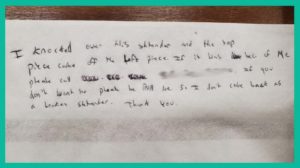 I knocked over this shtender and the top
piece came off the left piece. If it was bec of me
please call
If you
don't want to please be so I don't come back as
a broken shtender. Thank you.